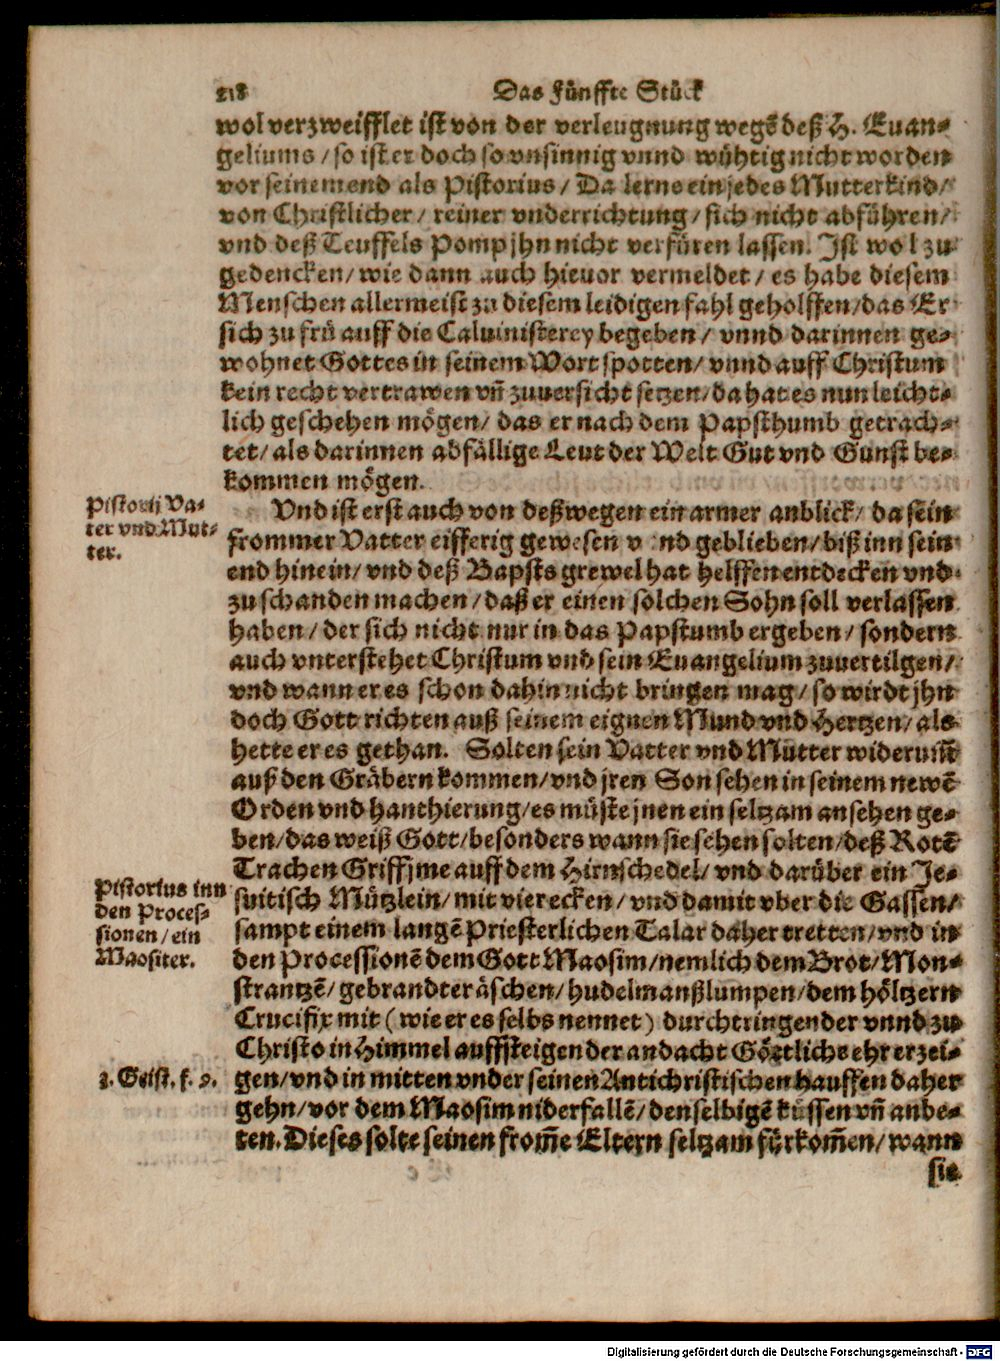 218 Das Fünffte Stück
wol verzweifflet ist von der verleugnung wegẽ deß H. Euan-
geliums / so ist er doch so vnsinnig vnnd wühtig nicht worden
vor seinem end als Pistorius / Da lerne ein jedes Mutterkind /
von Christlicher / reiner vnderrichtung / sich nicht abführen /
vnd deß Teuffels Pomp jhn nicht verfüren lassen. Ist wol zu
gedencken / wie dann auch hieuor vermeldet / es habe diesem
Menschen allermeist zu diesem leidigen fahl geholffen / das Er
sich zu frü auff die Caluinisterey begeben / vnnd darinnen ge-
wohnet Gottes in seinem Wort spotten / vnnd auff Christum
kein recht vertrawen vñ zuuersicht setzen / da hat es nun leicht-
lich geschehen mögen / das er nach dem Papsthumb getrach-
tet / als darinnen abfällige Leut der Welt Gut vnd Gunst be-
kommen mögen.
Pistorij Va-
ter vnd Mut-
ter.
Vnd ist erst auch von deßwegen ein armer anblick / da sein
frommer Vatter eifferig gewesen vnd geblieben / biß inn sein
end hinein / vnd deß Bapsts grewel hat helffen entdecken vnd
zu schanden machen / daß er einen solchen Sohn soll verlassen
haben / der sich nicht nur in das Papstumb ergeben / sondern
auch vnterstehet Christum vnd sein Euangelium zuuertilgen /
vnd wann er es schon dahin nicht bringen mag / so wirdt jhn
doch Gott richten auß seinem eignen Mund vnd Hertzen / als
hette er es gethan. Solten sein Vatter vnd Mutter widerum̃
auß den Gräbern kommen / vnd jren Son sehen in seinem newẽ
Orden vnd hanthierung / es müste jnen ein seltzam ansehen ge-
ben / das weiß Gott / besonders wann sie sehen solten / deß Rotẽ
Trachen Griff jme auff dem Hirnschedel / vnd darüber ein Je-
Pistorius inn
den Proces-
sionen / ein
Maositer.
suitisch Mützlein / mit vier ecken / vnd damit vber die Gassen /
sampt einem langẽ Priesterlichen Talar daher tretten / vnd in
den Processionẽ dem Gott Maosim / nemlich dem Brot / Mon-
strantzẽ / gebrandter äschen / hudelmanßlumpen / dem höltzern
Crucifix mit ( wie er es selbs nennet ) durchtringender vnnd zu
Christo in Himmel auffsteigender andacht Göttliche ehr erzei-
3. Geist. f. 9.
gen / vnd in mitten vnder seinen Antichristischen hauffen daher
gehn / vor dem Maosim niderfallẽ / denselbigẽ küssen vñ anbe-
ten. Dieses solte seinen from̃e Eltern seltzam fürkom̃en / wann
sie
Digitalisierung gefördert durch die Deutsche Forschungsgemeinschaft - DFG